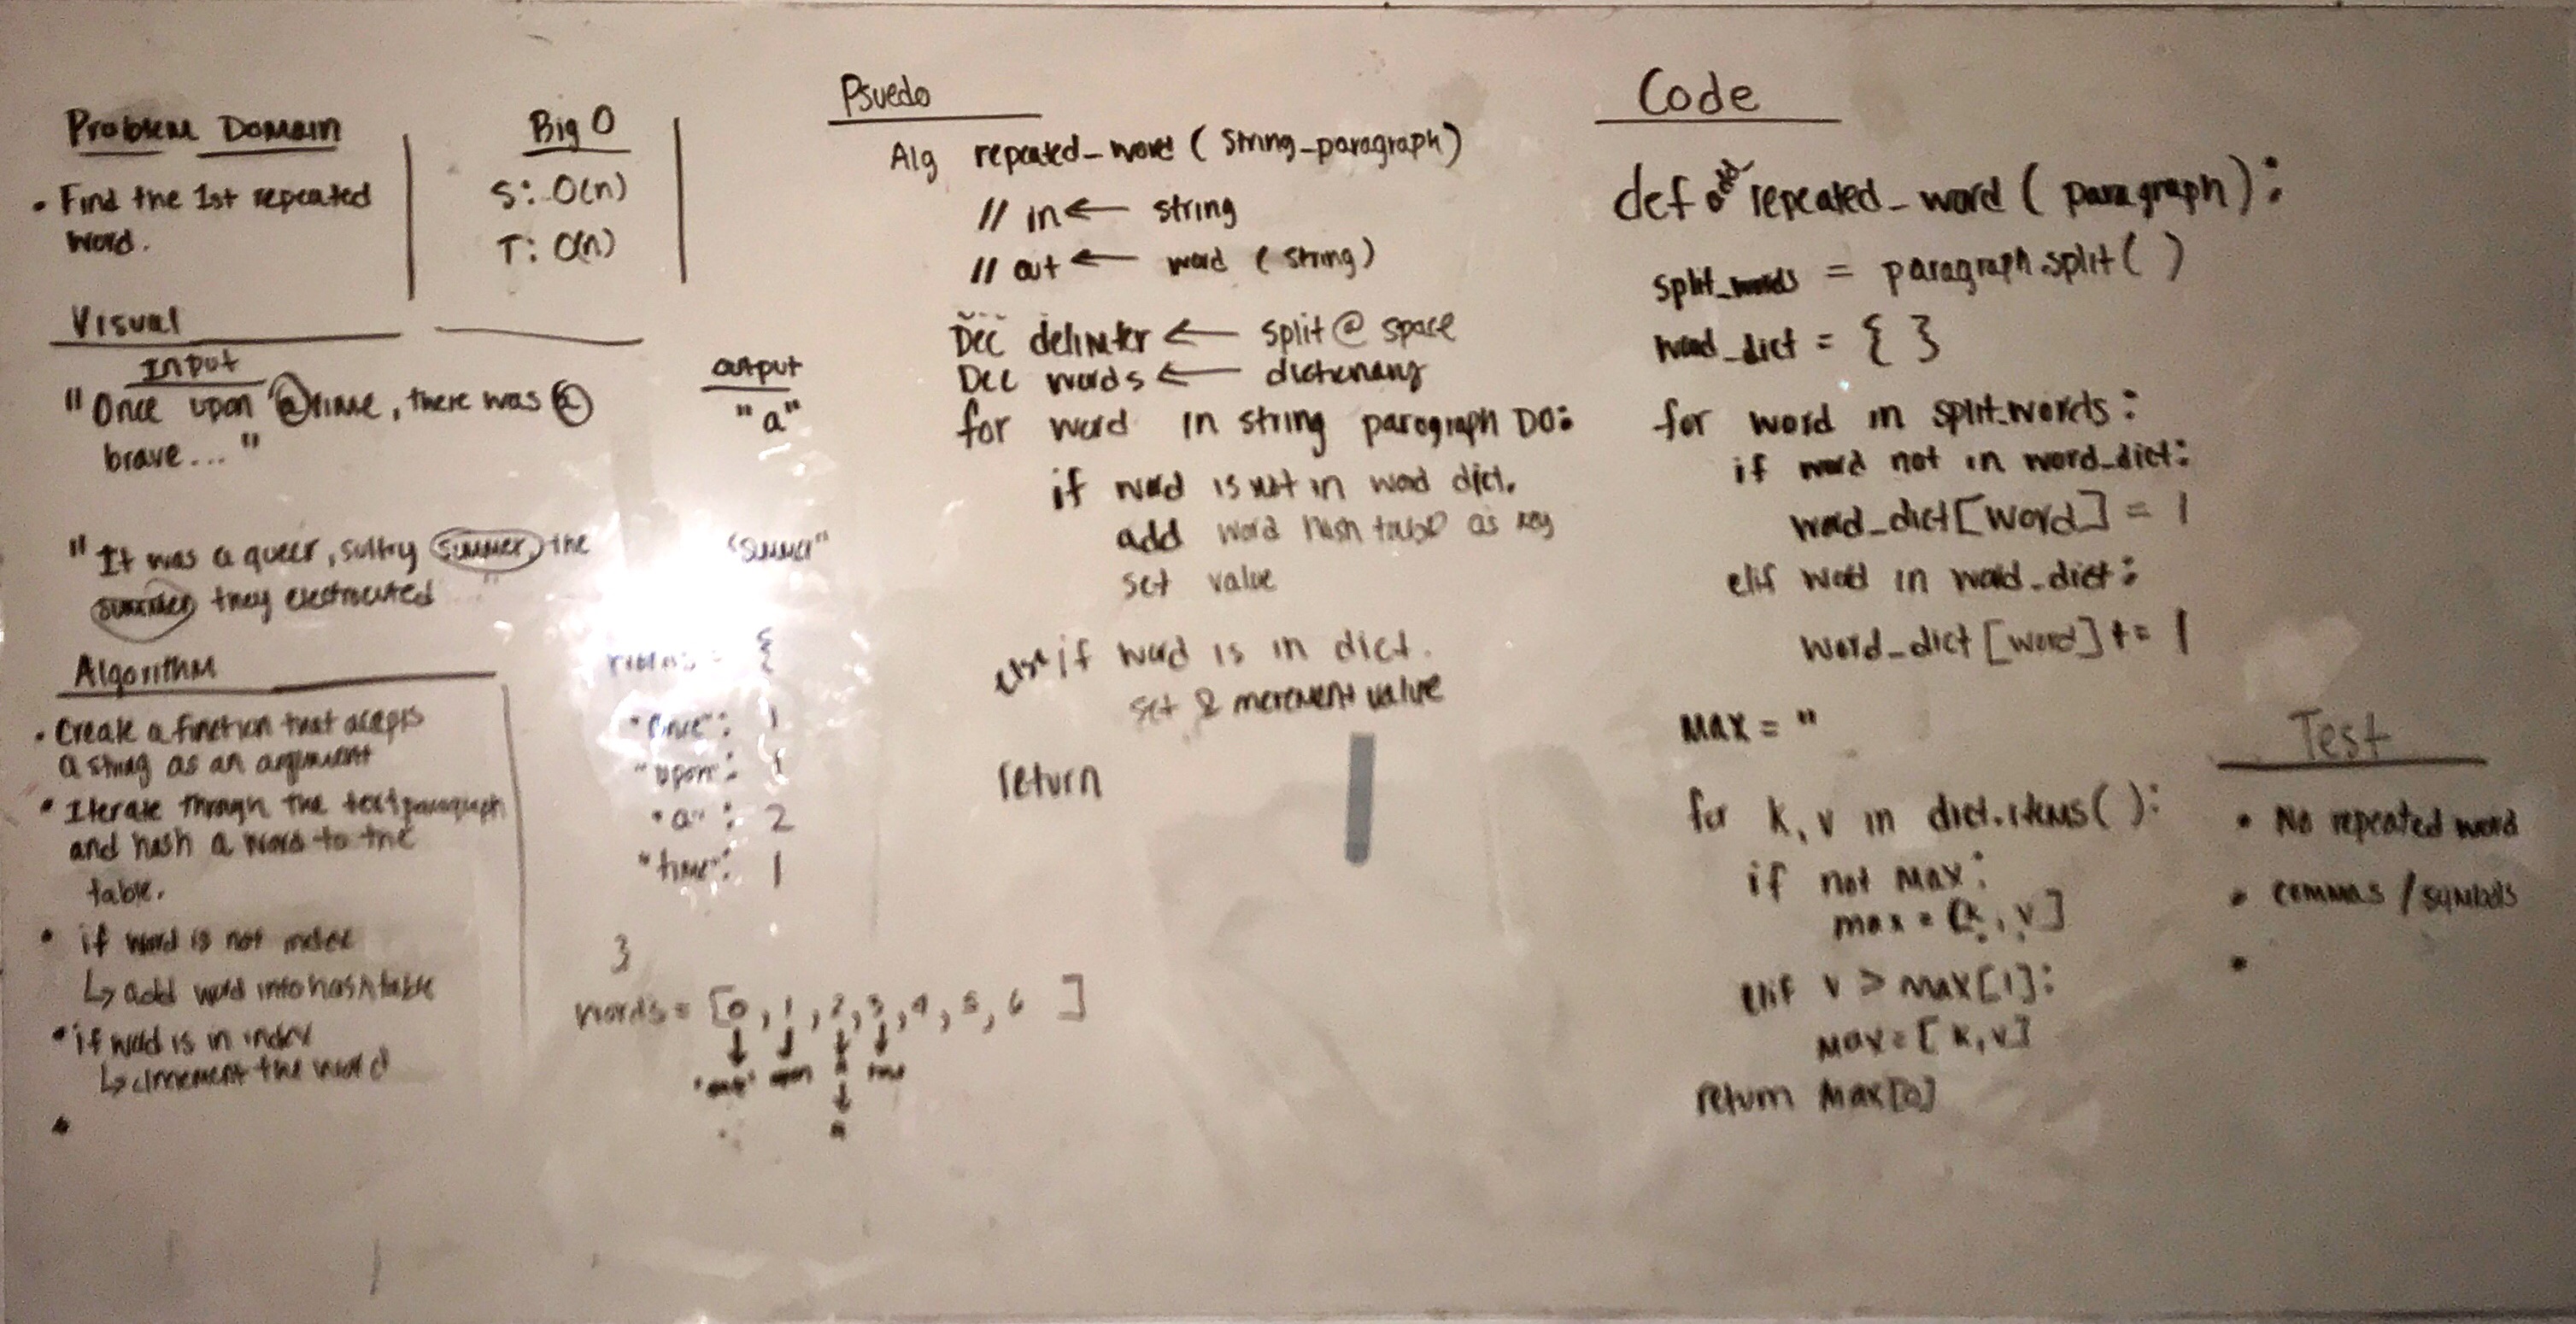 Problem Domain
• Find the 1st repeated
word.
Big O
S: O(n)
T: O(n)
Visual
Input
"Once upon a time, there was a
brave... "
output
"a"
"It was a queer, sultry summer, the
summer they electrocuted "
"summer"
Algorithm
• Create a function that accepts
a string as an argument
• Iterate through the text paragraph
and hash a word to the
table.
• if word is not index
↳ add word into hashtable
• if word is in index
↳ increment the word
•
= {
"once": 1
"upon": 1
"a": 2
"time": 1
}
words = [0, 1, 2, 3, 4, 5, 6 ]
"once" upon a time
Psuedo
Alg repeated_word ( string_paragraph)
// in ← string
// out ← word (string)
Dec delimiter ← split @ space
Dec words ← dictionary
for word in string paragraph DO:
if word is not in word dict.
add word hash table as key
set value
else if word is in dict.
set & increment value
return
Code
def repeated_word ( paragraph):
split_words = paragraph.split( )
word_dict = { }
for word in split_words:
if word not in word_dict:
word_dict[word] = 1
elif word in word_dict:
word_dict[word] += 1
MAX = "
for k, v in dict.items( ):
if not MAX:
max = [k, v]
elif v > MAX[1]:
MAX = [k, v]
return MAX[0]
Test
• No repeated word
• commas / symbols
•